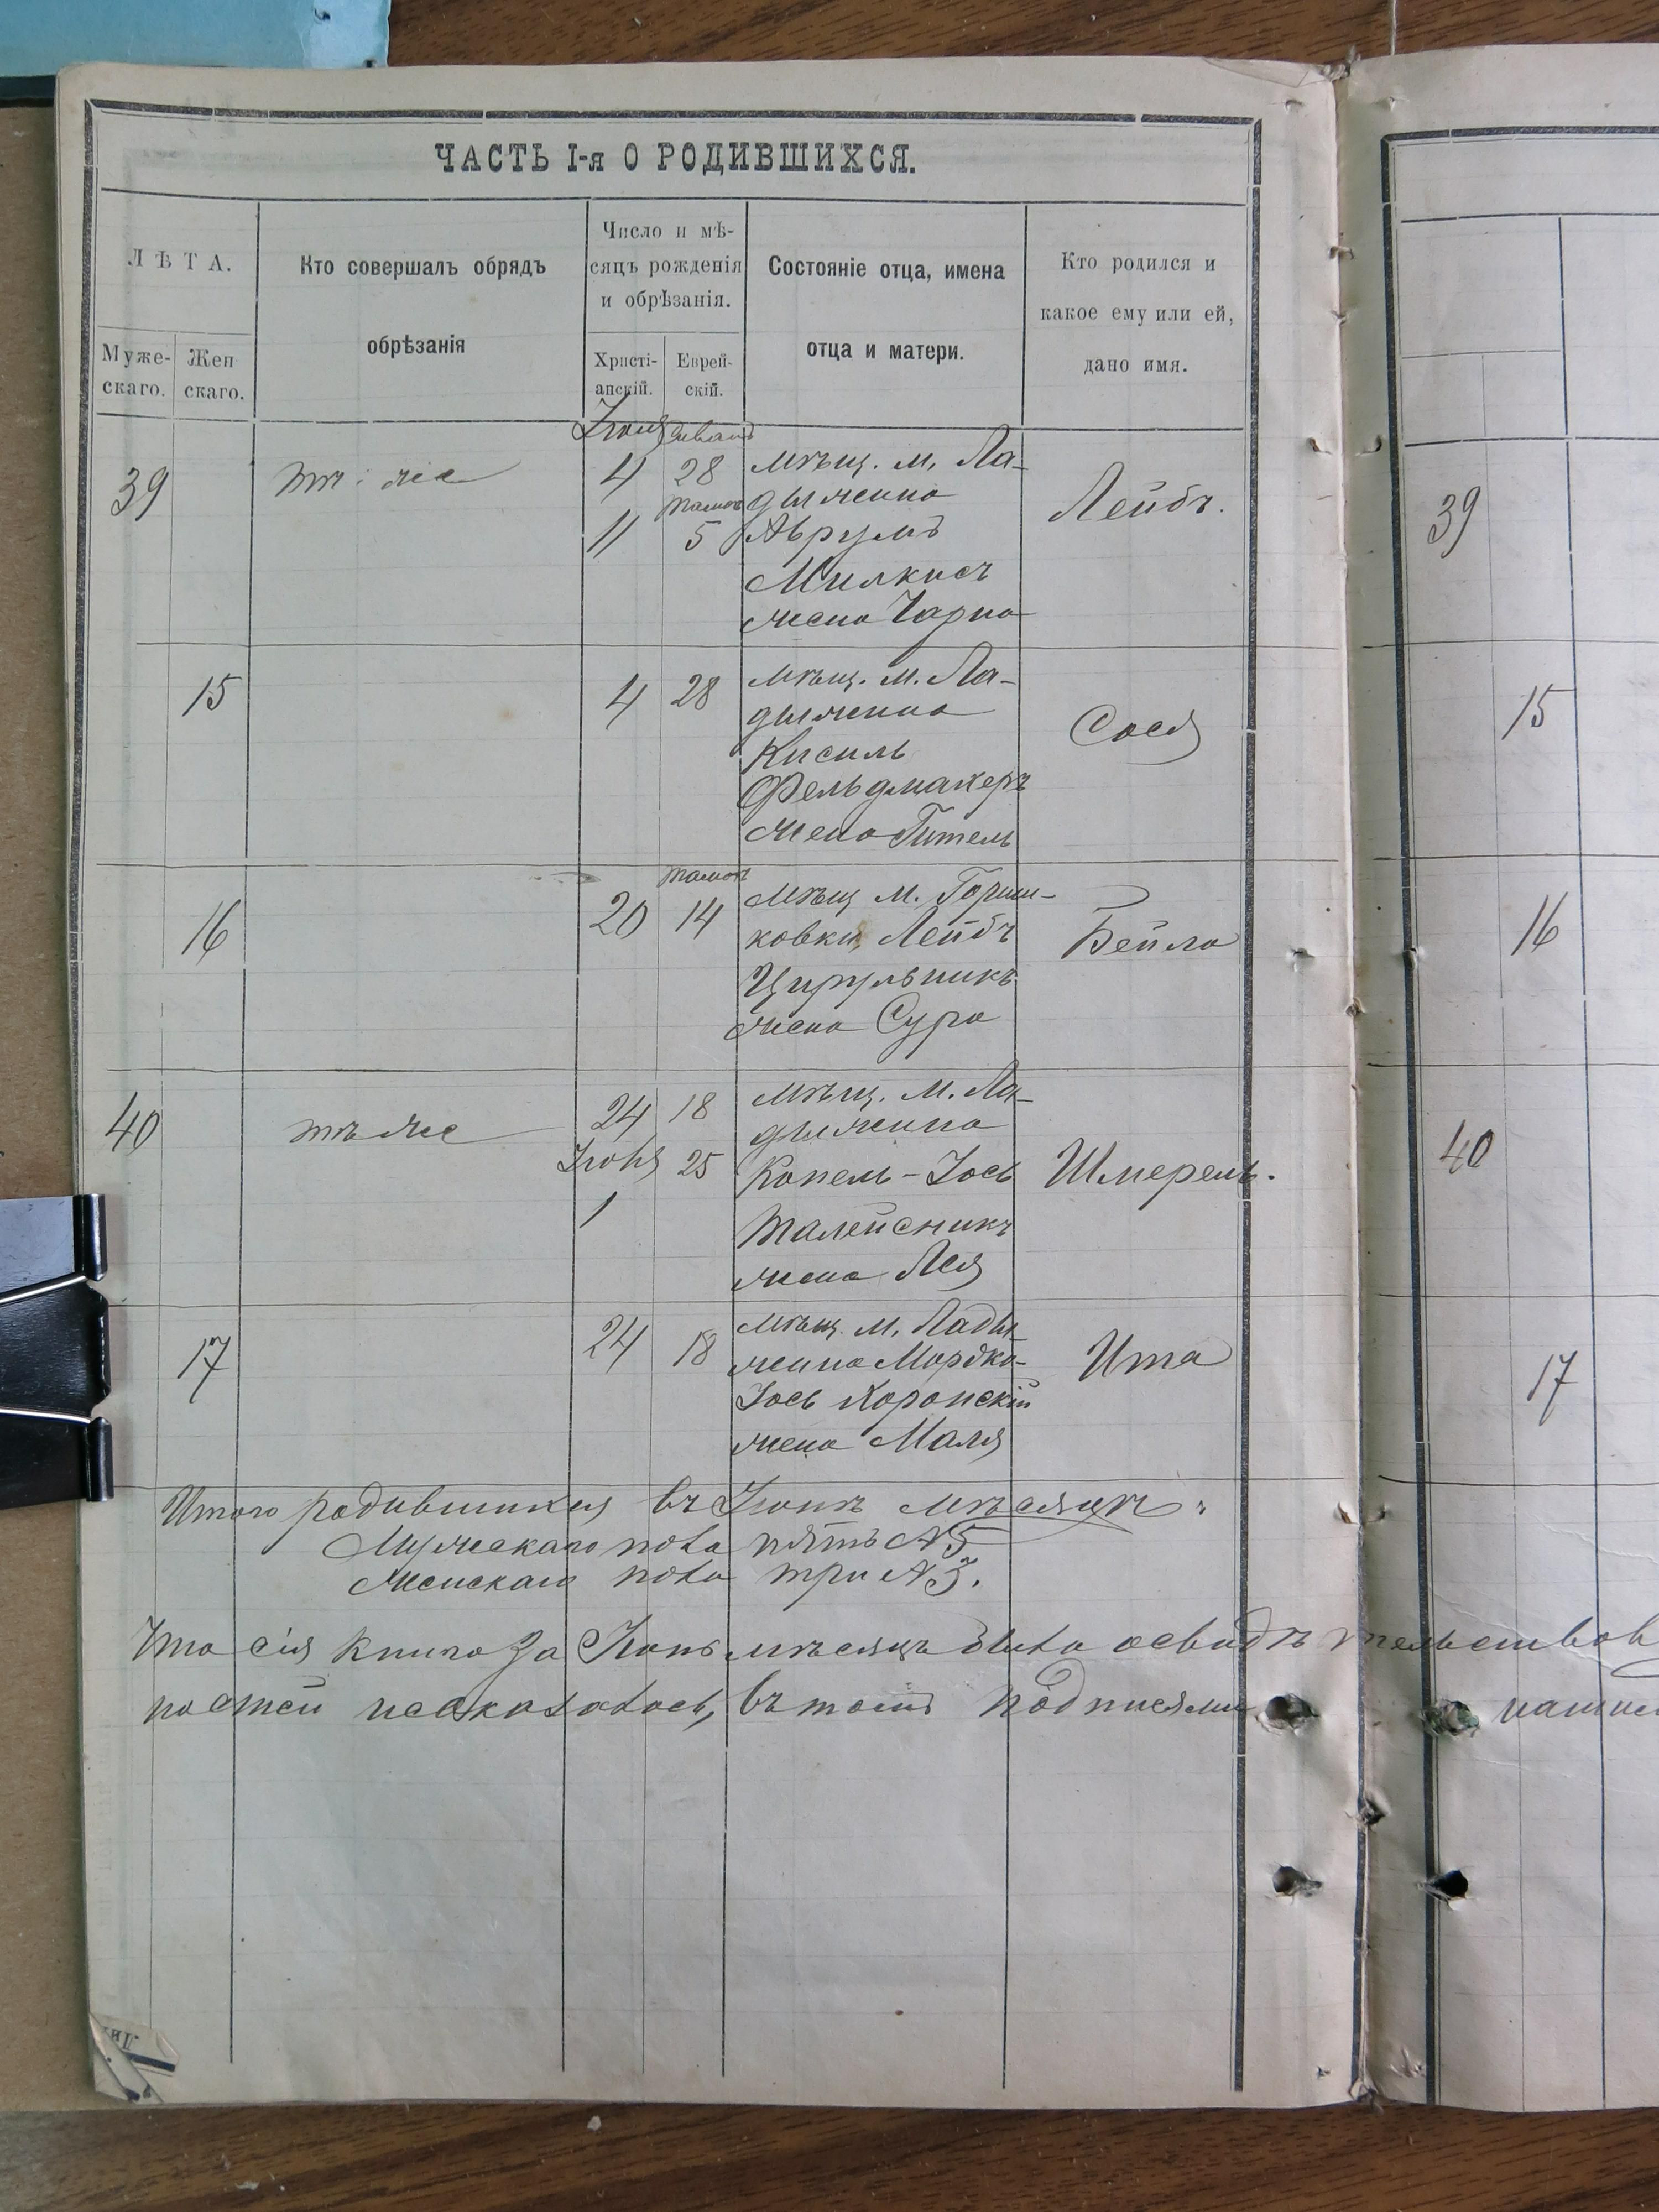 ЧАСТЬ I-я О РОДИВШИХСЯ.
ЛѢТА.
Муже-
скаго.
Жен
скаго.
Кто совершалъ обрядъ
обрѣзанія
Число и мѣ-
сяцъ рожденія
и обрѣзанія.
Христі-
анскій.
Еврей-
скій.
Состояніе отца, имена
отца и матери.
Кто родился и
какое ему или ей,
дано имя.
39
тѣ же
Іюня
4
11
Сиванъ
28
Тамоз
5
мѣщ. м. Ла-
дыжина
Аврумъ
Милкисъ
жена Чарна
Лейбъ.
39
15
4
28
мѣщ. м. Ла-
дыжина
Кисиль
Фельдмахеръ
жена Гитель
Сося
15
16
20
Тамоз
14
мѣщ м. Горыш-
ковки, Лейбъ
Цирульникъ
жена Сура
Бейла
16
40
тѣ же
24
1
18
25
мѣщ. м. Ла-
дыжина
Копель-Іось
Талейсникъ
жена Лея
Шмерель.
40
17
24
18
мѣщ. м. Лады-
жина Мордко-
Іось Коропскій
жена Маля
Ита
17
Итого родившихся въ Іюнѣ мѣсяцѣ
Мужескаго пола пять №5
Женскаго пола три №3.
Что сія книга за Іюнь мѣсяцъ была освидѣтельствов
ностей неоказалось, въ томъ подписями